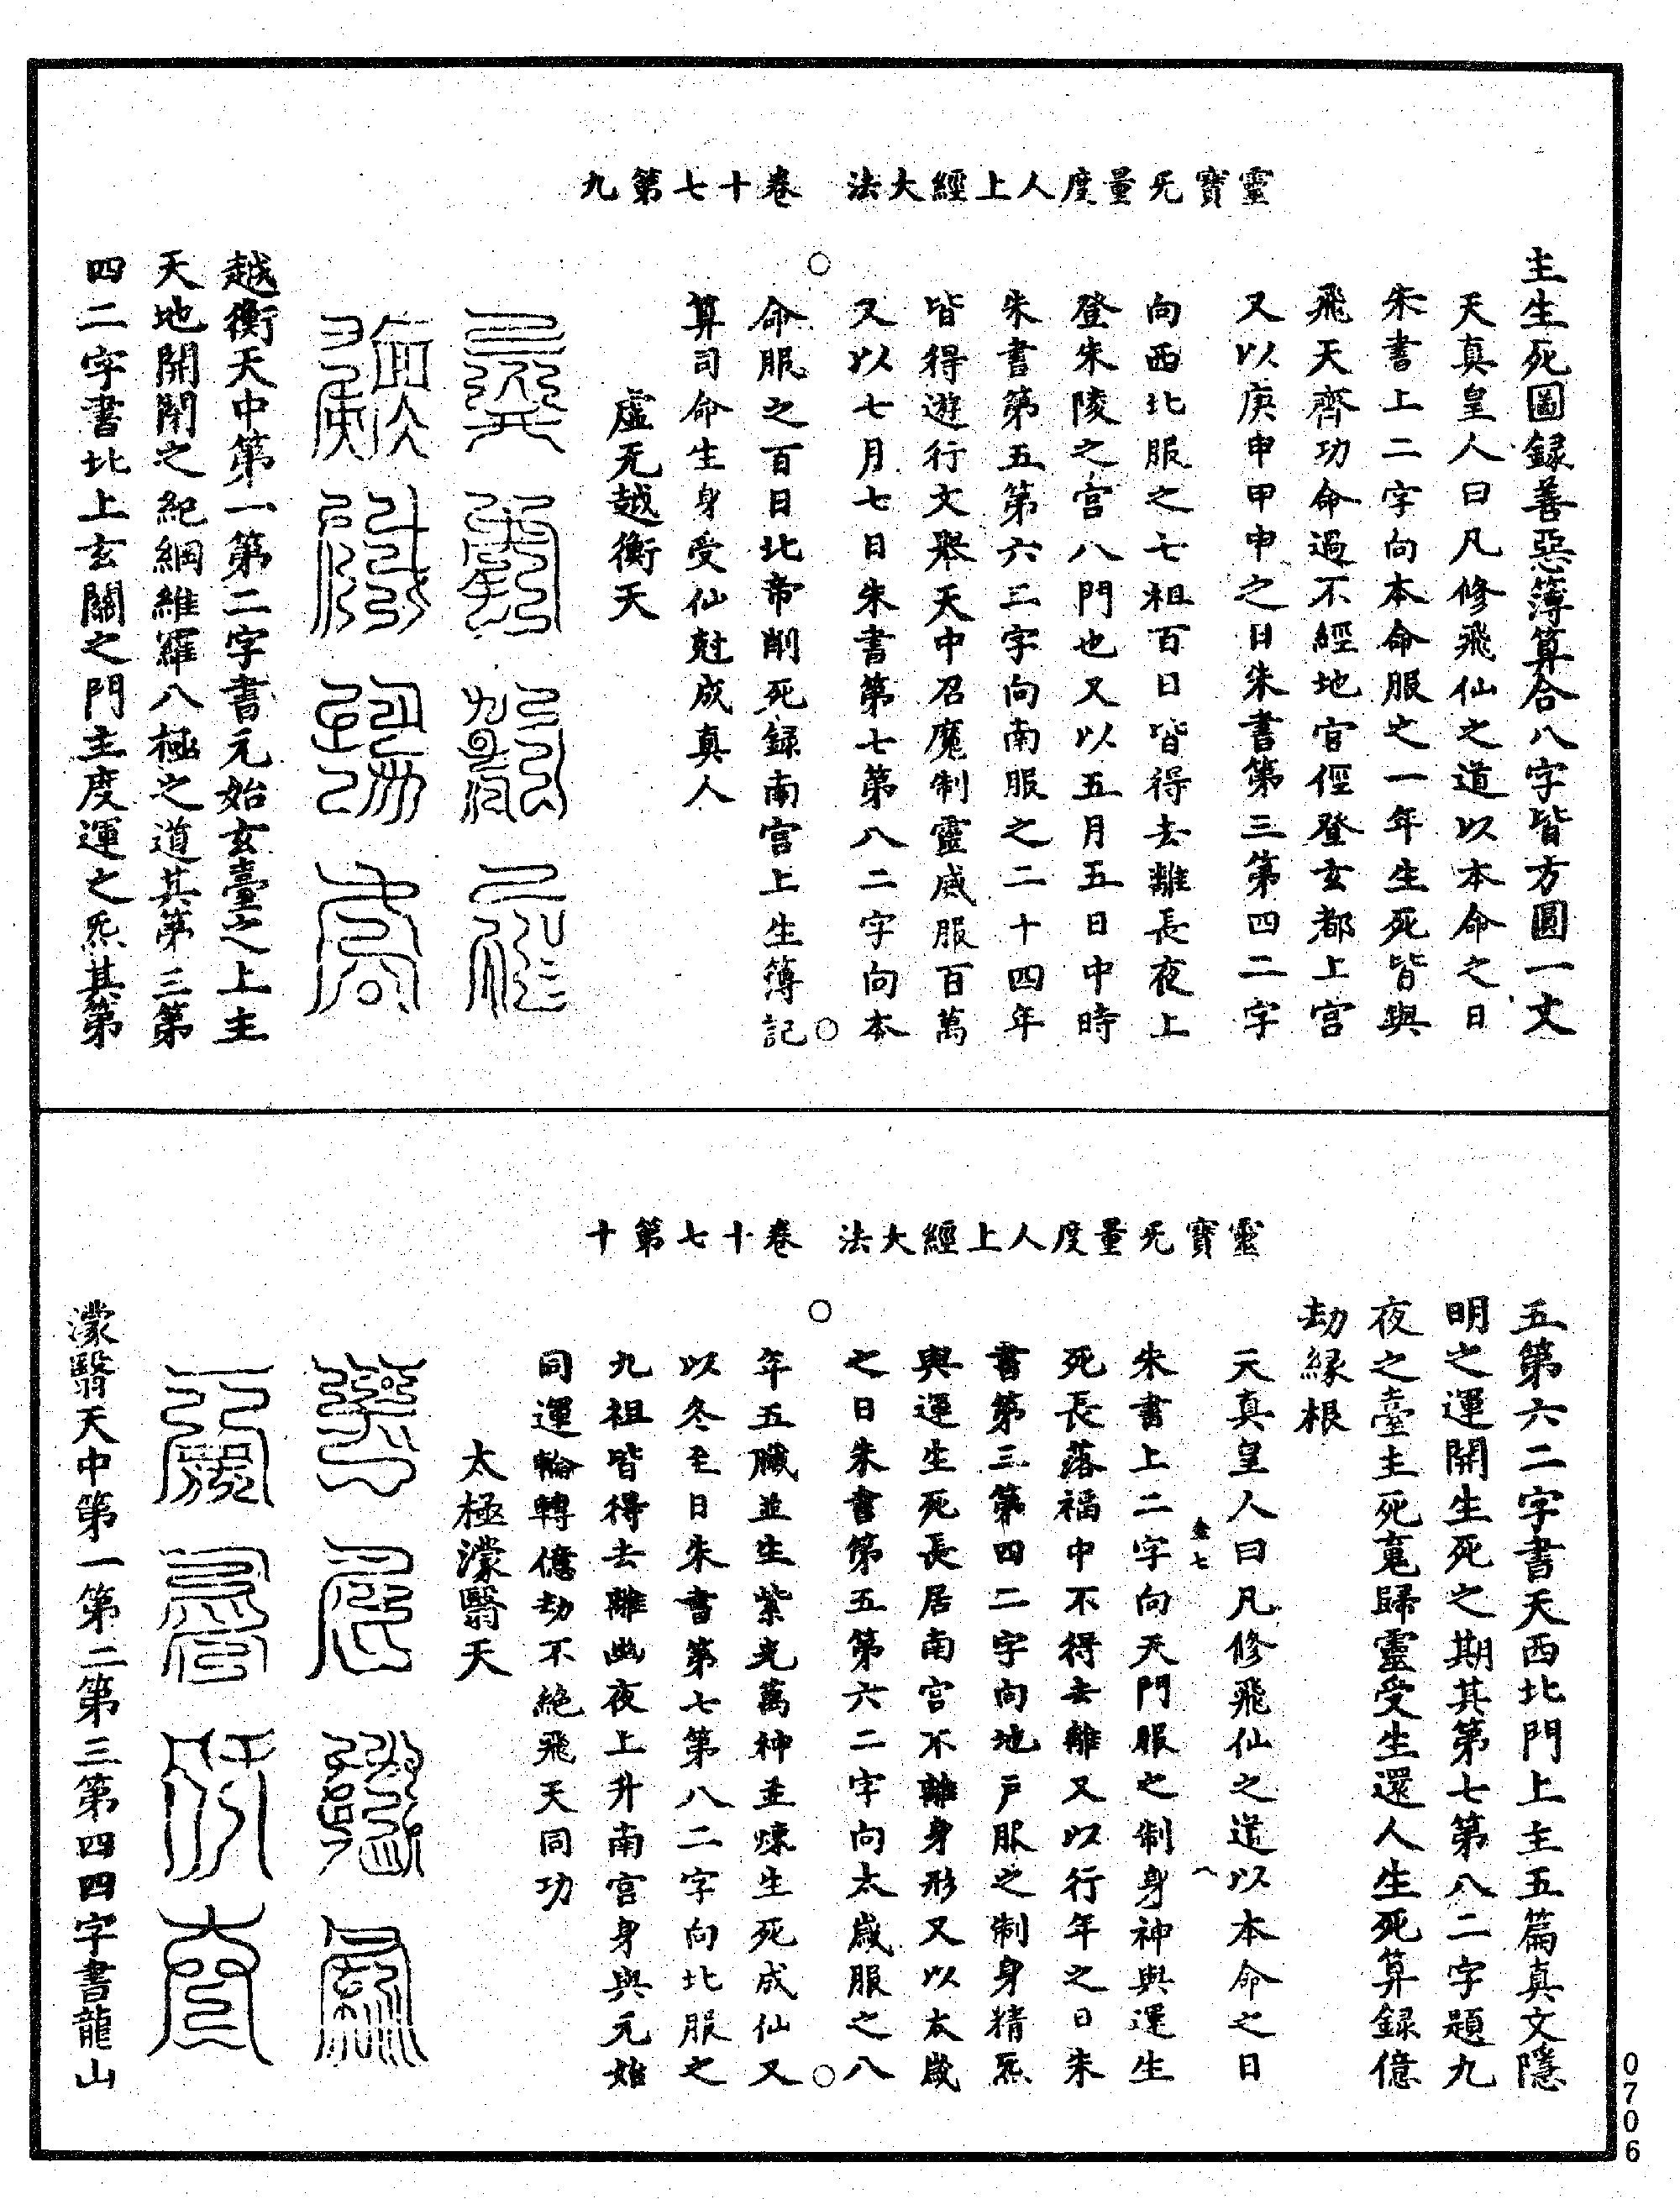 靈寶无量度人上經大法　卷十七第九
主生死圖録善惡簿算合八字皆方圓一丈
天真皇人曰凡修飛仙之道以本命之日
朱書上二字向本命服之一年生死皆與
飛天齊功命過不經地官徑登玄都上宫
又以庚申甲申之日朱書第三第四二字
向西北服之七祖百日皆得去離長夜上
登朱陵之宫八門也又以五月五日中時
朱書第五第六二字向南服之二十四年
皆得遊行文舉天中召魔制靈威服百萬
又以七月七日朱書第七第八二字向本
命服之百日北帝削死録南宫上生簿記
算司命生身受仙尅成真人
虛无越衡天
越衡天中第一第二字書元始玄臺之上主
天地開閉之紀綱維羅八極之道其第三第
四二字書北上玄關之門主度運之炁其第
靈寶无量度人上經大法　卷十七第十
五第六二字書天西北門上主五篇真文隱
明之運開生死之期其第七第八二字題九
夜之臺主死䰟歸靈受生還人生死算録億
劫緣根
天真皇人曰凡修飛仙之道以本命之日
朱書上二字向天門服之制身神與運生
死長落福中不得去離又以行年之日朱
書第三第四二字向地戸服之制身精炁
與運生死長居南宫不離身形又以太歲
之日朱書第五第六二字向太歲服之八
年五臟並生紫光萬神並煉生死成仙又
以冬至日朱書第七第八二字向北服之
九祖皆得去離幽夜上升南宫身與元始
同運輪轉億劫不絶飛天同功
太極濛翳天
濛翳天中第一第二第三第四四字書龍山
0706